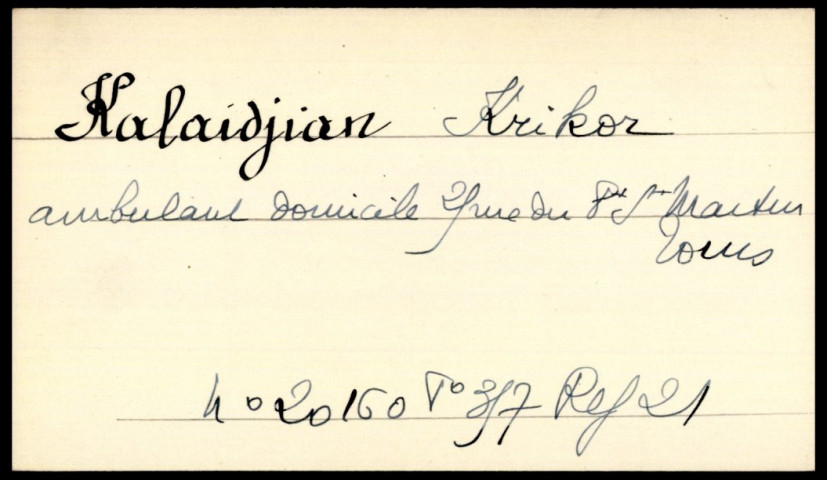 Kalaidjian Krikor
ambulant domicile 2 rue du Pt St Martin
Tours
No 20160 Fo 317 Ref 21